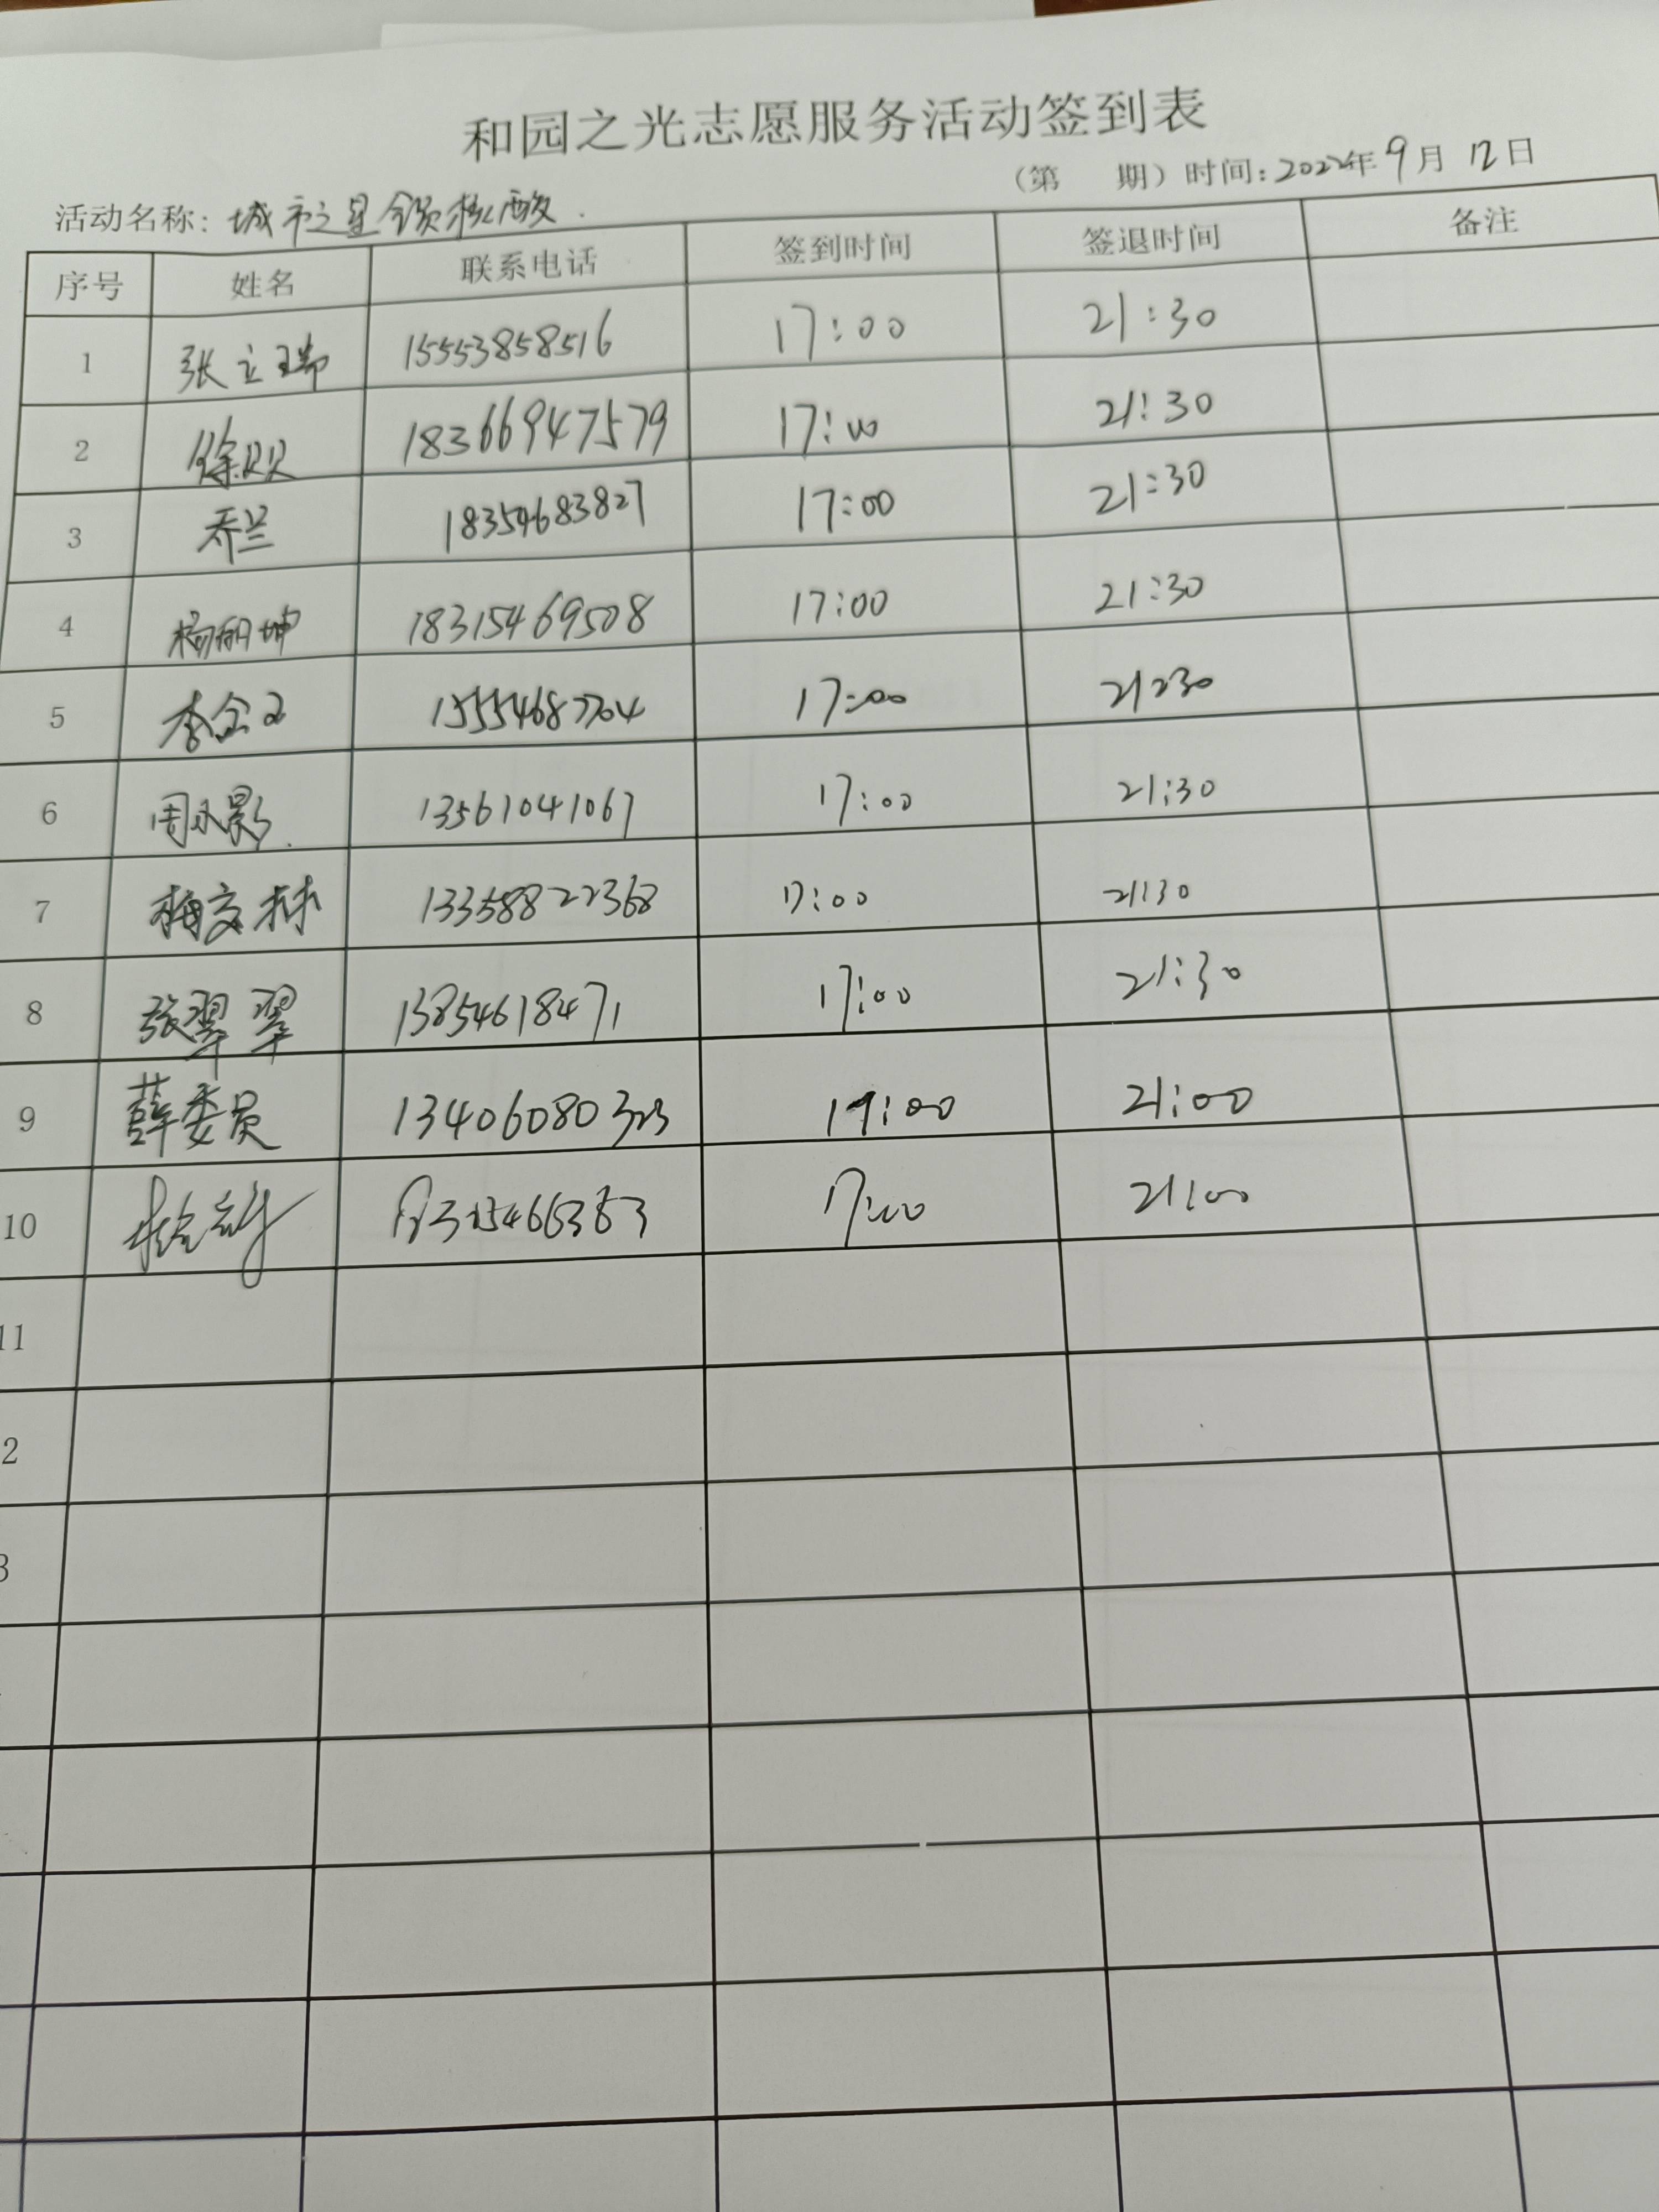 和园之光志愿服务活动签到表
(第 期)时间:2022年9月12日
活动名称:城市之星全员核酸.
序号 姓名 联系电话 签到时间 签退时间 备注
1 张立瑞 15553858516 17:00 21:30
2 徐贝贝 18366947579 17:00 21:30
3 乔兰 18354683827 17:00 21:30
4 杨丽坤 18315469508 17:00 21:30
5 李 15554687704 17:00 21:30
6 周永影. 13561041067 17:00 21:30
7 梅文林 13358822368 17:00 21:30
8 张翠翠 13854618471 17:00 21:30
9 薛委员 13406080323 17:00 21:00
10 17:00 21:00
11
2
3